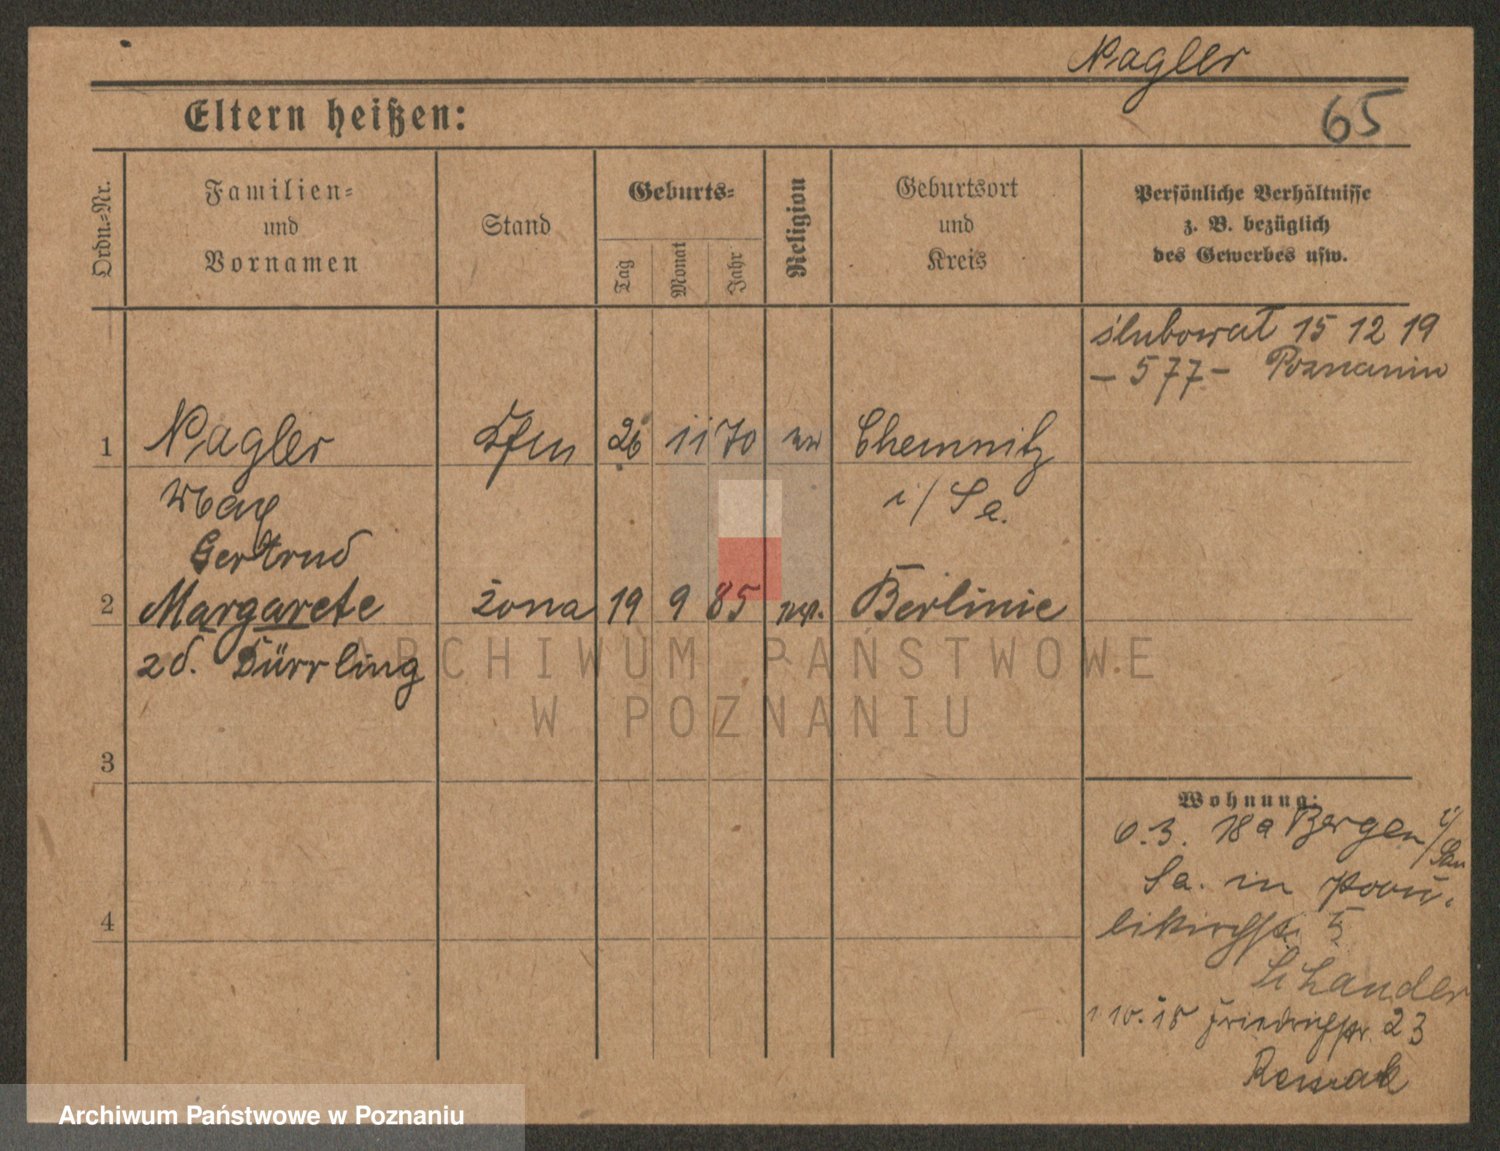 Nagler
Eltern heißen:
65
Ordn.-Nr.
Familien-
und
Vornamen
Stand
Geburts-
Tag
Monat
Jahr
Religion
Geburtsort
und
Kreis
Persönliche Verhältnisse
z. B. bezüglich
des Gewerbes usw.
ślubował 15 12 19
– 577 – Poznaniu
1 Nagler 26 11 70 Chemnitz
Max i/Sa.
Gertrud
2 Margarete żona 19 9 85 Berlinie
zd. Dürrling
3
Wohnung:
18a Bergen
Sa. in
4
5
Schander
1 10. 15 Friedrichstr. 23
ARCHIWUM PAŃSTWOWE
W POZNANIU
Archiwum Państwowe w Poznaniu